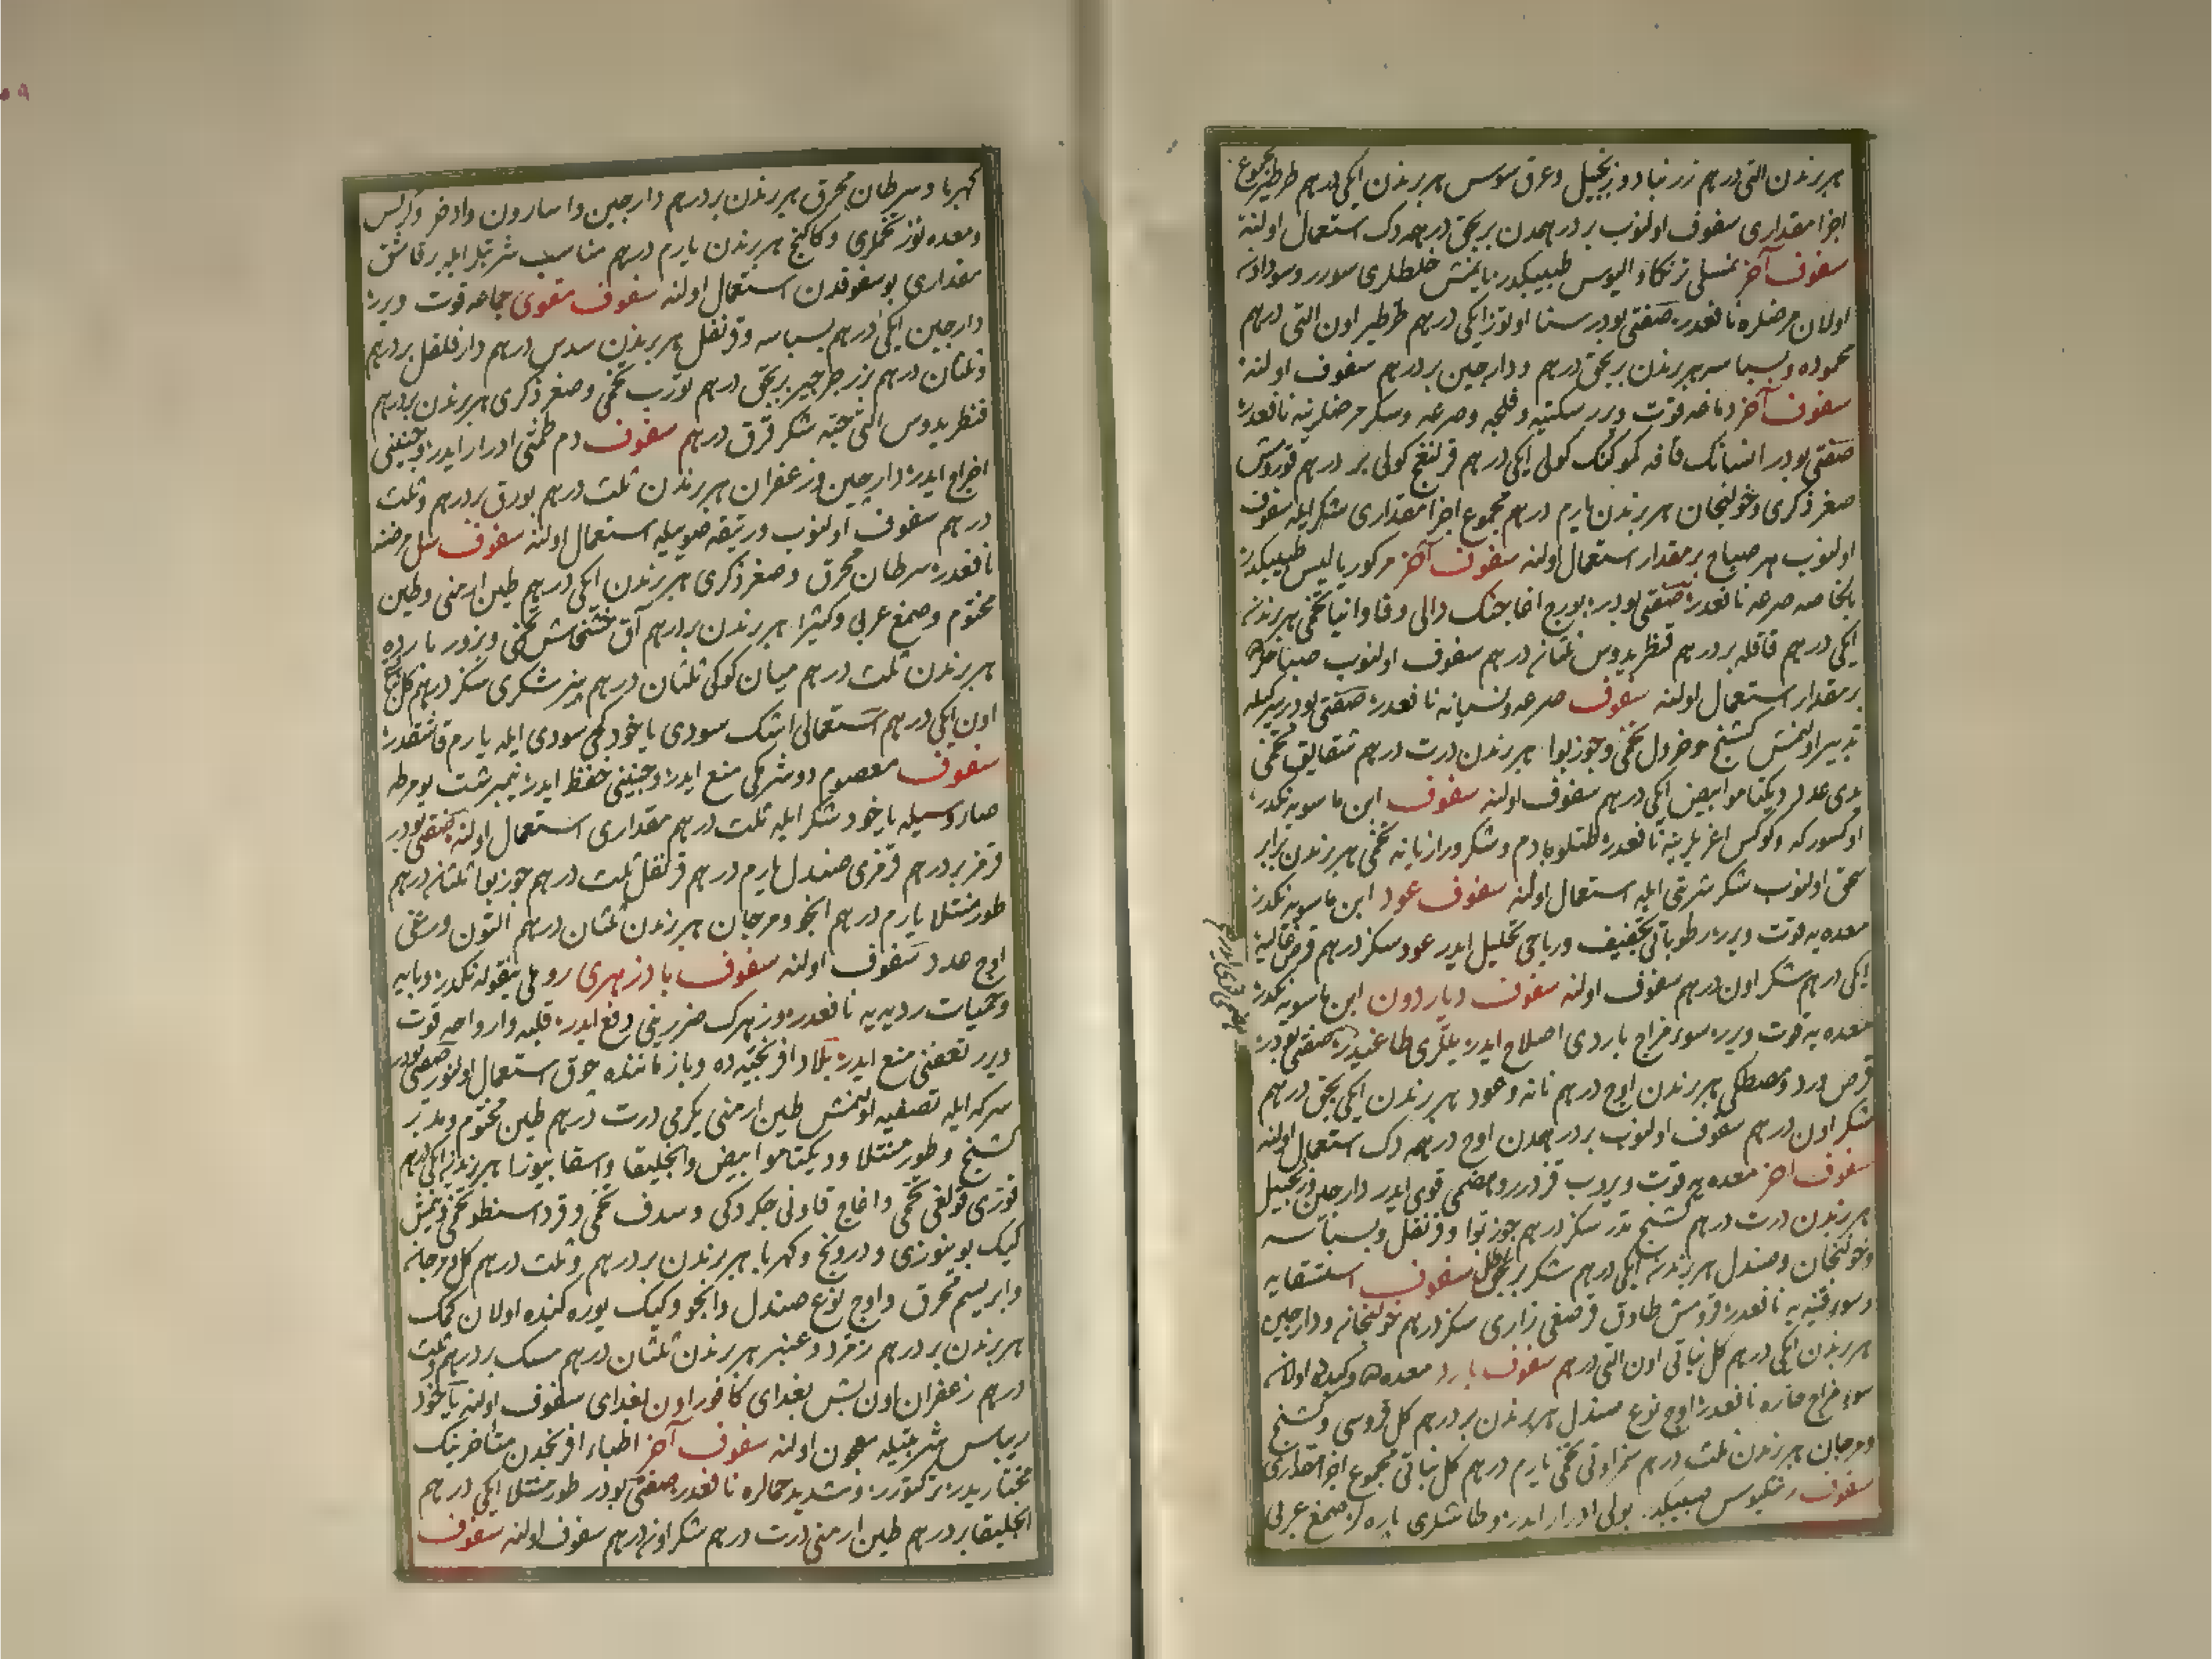 هر برندن التی درهم زرنباد و زنجبیل و عرق سوس هر برندن ایکی درهم طرطیر مجموع
اجزا مقداری سفوف اولنوب بر درهمدن بر بچق درهمه دک استعمال اولنه
سفوف آخر طبیبکدر یانمش خلطلری سورر و سودادن
اولان مرضلره نافعدر صفتی بودر سنا اوتوز ایکی درهم طرطیر اون التی درهم
محموده و بسباسه هر برندن بر بچق درهم و دارچین بر درهم سفوف اولنه
سفوف آخر دماغه قوت ویرر سکتیه و فلجه و صرعه و سکر مرضلرینه نافعدر
صفتی بودر انسانک قافه کموکنک کولی ایکی درهم قرلنغج کولی بر درهم قوروش
صغر ذکری و خولنجان هر برندن یارم درهم مجموع اجزا مقداری شکر ایله سفوف
اولنوب هر صباح بر مقدار استعمال اولنه سفوف آخر مرکور یالیس طبیبکدر
بالخاصه صرعه نافعدر صفتی بودر بورج اغاجنک دالی و فاوانیا تخمی هر برندن
ایکی درهم قاقله بر درهم قنطریدوس ثلثان درهم سفوف اولنوب صباحلره
بر مقدار استعمال اولنه سفوف صرعه و نسیانه نافعدر صفتی بودر سرکه ایله
تدبیر اولنمش کشنج و خردل تخمی و جوز بوا هر برندن درت درهم شقایق تخمی
یدی عدد دیکتاموا ابیض ایکی درهم سفوف اولنه سفوف ابن ماسویه نکدر
اوکسورکه و کوکس اغریلرینه نافعدر طتلو بادم و شکر و رازیانه تخمی هر برندن برابر
سحق اولنوب شکر شربتی ایله استعمال اولنه سفوف عود ابن ماسویه نکدر
معده یه قوت ویرر رطوباتی تجفیف و ریاحی تحلیل ایدر عود سکز درهم قرص غالیه
ایکی درهم شکر اون درهم سفوف اولنه سفوف دیاردون ابن ماسویه نکدر
معده یه قوت ویرر سوء مزاج باردی اصلاح ایدر یللری طاغیدر صفتی بودر
قرص ورد و مصطکی هر برندن اوچ درهم نانه و عود هر برندن ایکی بچق درهم
شکر اون درهم سفوف اولنوب بر درهمدن اوچ درهمه دک استعمال اولنه
سفوف آخر معده یه قوت ویروب قزدرر و هضمی قوی ایدر دارچین و زنجبیل
هر برندن درت درهم کشنج مدبر سکز درهم جوز بوا و قرنفل و بسباسه
و خولنجان و صندل هر برندن ایکی درهم شکر بر بچق رطل سفوف استسقایه
و سوء قنیه یه نافعدر قورمش طاوق قرصغی زاری سکز درهم خولنجان و دارچین
هر برندن ایکی درهم کل نباتی اون التی درهم سفوف بارد معده ده و کبدده اولان
سوء مزاج حاره نافعدر اوچ نوع صندل هر برندن بر درهم کل قروسی و کشنج
و مرجان هر برندن ثلث درهم سمزاوتی تخمی یارم درهم کل نباتی مجموع اجزا مقداری
سفوف طبیبکدر بولی ادرار ایدر و طاشلری پاره لر صمغ عربی
کهربا و سرطان محرق هر برندن بر درهم دارچین و اسارون و اذخر و کرفس
و معده نوز تخملری و کاکنج هر برندن یارم درهم مناسب شربتلر ایله بر قاشق
مقداری بو سفوفدن استعمال اولنه سفوف مقوی جماعه قوت ویرر
دارچین ایکی درهم بسباسه و قرنفل هر برندن سدس درهم دار فلفل بر درهم
و ثلثان درهم بزر جرجیر بر بچق درهم تورب تخمی و صغر ذکری هر برندن بر درهم
قنطریدوس التی حبه شکر قرق درهم سفوف دم طمثی ادرار ایدر و جنینی
اخراج ایدر دارچین و زعفران هر برندن ثلث درهم بورق بر درهم و ثلث
درهم سفوف اولنوب صویله استعمال اولنه سفوف سل مرضنه
نافعدر سرطان محرق و صغر ذکری هر برندن ایکی درهم طین ارمنی و طین
مختوم و صمغ عربی و کثیرا هر برندن بر درهم آق خشخاش تخمی و بزور بارده
هر برندن ثلث درهم میان کوکی ثلثان درهم پنیر شکری سکز درهم کل
اون ایکی درهم استعمالی اشک سودی یاخود کچی سودی ایله یارم قاشقدر
سفوف معصوم دوشرمکی منع ایدر و جنینی حفظ ایدر نیمبرشت یومرطه
صاروسیله یاخود شکر ایله ثلث درهم مقداری استعمال اولنه صفتی بودر
قرمز بر درهم قرمزی صندل یارم درهم قرنفل ثلث درهم جوز بوا ثلثان درهم
طورمنتلا یارم درهم انجو و مرجان هر برندن ثلثان درهم التون ورقی
اوچ عدد سفوف اولنه سفوف بادزهری نکدر وبایه
و حمیات ردییه یه نافعدر و زهرک ضررینی دفع ایدر قلبه و ارواحه قوت
ویرر تعفنی منع ایدر بلاد افرنجیه ده و بازماننده چوق استعمال اولنور صفتی بودر
سرکه ایله تصفیه اولنمش طین ارمنی یکرمی درت درهم طین مختوم و مدبر
کشنج و طورمنتلا و دیکتاموا ابیض و انجلیقا و هر برندن ایکی درهم
قوزی قولغی تخمی و اغاج قاونی چکردکی و صدف تخمی و قرد
کیک بوینوزی و درونج و کهربا هر برندن بر درهم و ثلث درهم کل و مرجان
و ابریسم محرق و اوچ نوع صندل و انجو و کیک یوره کنده اولان کمک
هر برندن بر درهم زمرد و عنبر هر برندن ثلثان درهم مسک بر درهم و ثلث
درهم زعفران اون بش بغدای کافور اون بغدای سفوف اولنه یاخود
ریباس شربتیله معجون اولنه سفوف آخر اطباء افرنجدن متأخرینک
مختاریدر و شدید حمالره نافعدر صفتی بودر طورمنتلا ایکی درهم
انجلیقا بر درهم طین ارمنی درت درهم شکر اون درهم سفوف اولنه سفوف